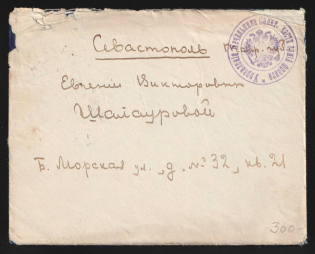 Севастополь
Евгеніи Викторовнѣ
Шалауровой
Б. Морская ул., д. № 32, кв. 21
300-